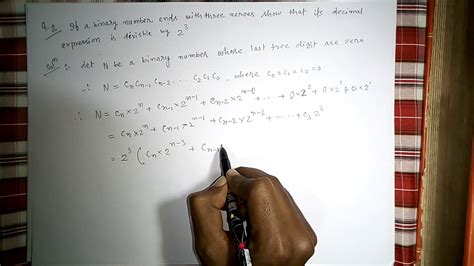 Q.2 If a binary number ends with three zeroes show that its decimal
expression is divisible by 2³
Solⁿ :- Let N be a binary number whose last free digit are zero
∴ N = Cₙ Cₙ₋₁ Cₙ₋₂ .... C₂ C₁ C₀ , where C₀ = C₁ = C₂ = 0
∴ N = Cₙ × 2ⁿ + Cₙ₋₁ × 2ⁿ⁻¹ + Cₙ₋₂ × 2ⁿ⁻² + ... + 0 × 2² + 0 × 2¹ + 0 × 2⁰
= Cₙ × 2ⁿ + Cₙ₋₁ × 2ⁿ⁻¹ + Cₙ₋₂ × 2ⁿ⁻² + .... + C₃ 2³
= 2³ ( Cₙ × 2ⁿ⁻³ + Cₙ₋